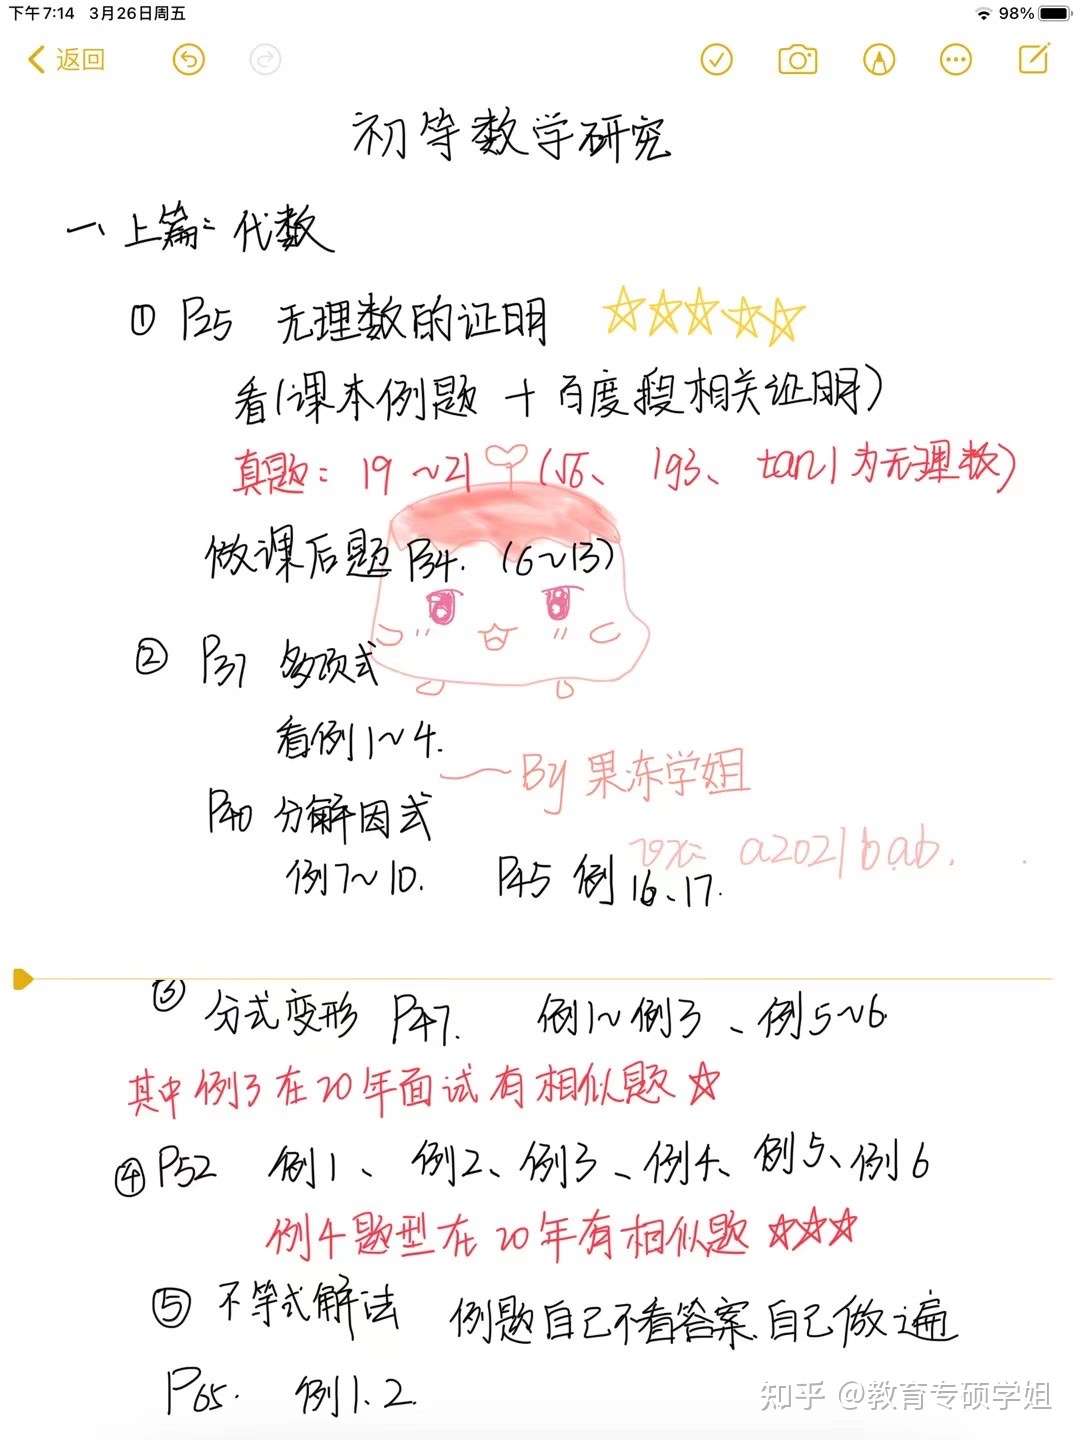 下午7:14 3月26日周五
98%
返回
初等数学研究
一、上篇：代数
① P25 无理数的证明 ☆☆☆☆☆
看(课本例题 + 百度搜相关证明)
真题：19~21 (√6、 lg3、 tan1为无理数)
做课后题 P34. (6~13)
② P37 多项式
看例1~4.
—By 果冻学姐
P40 分解因式
a2021bab.
例7~10. P45 例16、17.
③ 分式变形 P47. 例1~例3、例5~6.
其中例3在20年面试有相似题☆
④ P52 例1、例2、例3、例4、例5、例6
例4题型在20年有相似题☆☆☆
⑤ 不等式解法 例题自己不看答案.自己做遍
P65. 例1.2.
知乎 @教育专硕学姐